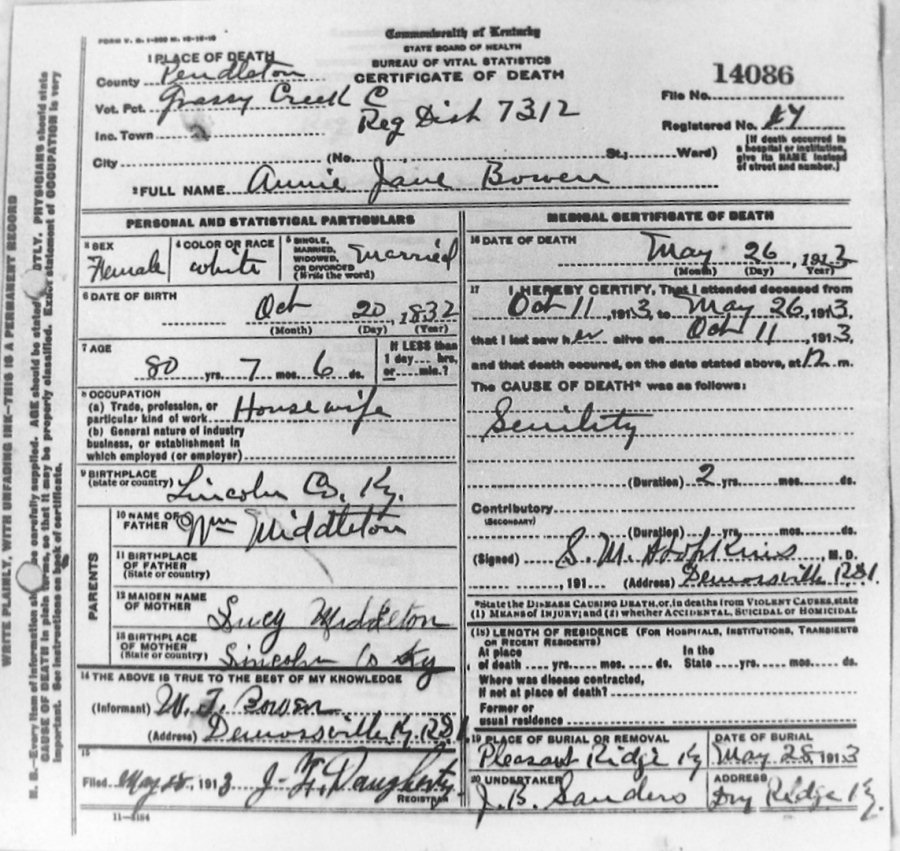 FORM V. S. 1-200 M. 12-12-10
Commonwealth of Kentucky
STATE BOARD OF HEALTH
BUREAU OF VITAL STATISTICS
CERTIFICATE OF DEATH
1 PLACE OF DEATH
County Pendleton
Vot. Pct. Grassy Creek C
Reg Dist 7312
Inc. Town
City (No. St.; Ward)
File No. 14086
Registered No. 27
[If death occurred in a hospital or institution, give its NAME instead of street and number.]
2 FULL NAME Annie Jane Bowen
PERSONAL AND STATISTICAL PARTICULARS
3 SEX Female
4 COLOR OR RACE white
5 SINGLE, MARRIED, WIDOWED, OR DIVORCED (Write the word) Married
6 DATE OF BIRTH
Oct 20, 1832
(Month) (Day) (Year)
7 AGE
80 yrs. 7 mos. 6 ds.
If LESS than 1 day hrs. or min.?
8 OCCUPATION
(a) Trade, profession, or particular kind of work Housewife
(b) General nature of industry
business, or establishment in
which employed (or employer)
9 BIRTHPLACE
(State or country) Lincoln Co, Ky.
PARENTS
10 NAME OF FATHER Wm Middleton
11 BIRTHPLACE OF FATHER
(State or country)
12 MAIDEN NAME OF MOTHER Lucy Middleton
13 BIRTHPLACE OF MOTHER
(State or country) Lincoln Co Ky
14 THE ABOVE IS TRUE TO THE BEST OF MY KNOWLEDGE
(Informant) W. T. Bowen
(Address) Demossville Ky. RD1.
15
Filed May 28, 1913 J. F. Daugherty
REGISTRAR
11-3184
MEDICAL CERTIFICATE OF DEATH
16 DATE OF DEATH
May 26, 1913
(Month) (Day) (Year)
17 I HEREBY CERTIFY, That I attended deceased from
Oct 11, 1913, to May 26, 1913,
that I last saw her alive on Oct 11, 1913
and that death occured, on the date stated above, at 12 m.
The CAUSE OF DEATH* was as follows:
Senility
(Duration) 2 yrs. mos. ds.
Contributory
(SECONDARY)
(Duration) yrs. mos. ds.
(Signed) S. M. Hopkins M. D.
, 191 (Address) Demossville RD1.
*State the DISEASE CAUSING DEATH, or, in deaths from VIOLENT CAUSES, state
(1) MEANS OF INJURY; and (2) whether ACCIDENTAL, SUICIDAL OR HOMICIDAL
(18) LENGTH OF RESIDENCE (FOR HOSPITALS, INSTITUTIONS, TRANSIENTS
OR RECENT RESIDENTS)
At place In the
of death yrs. mos. ds. State yrs. mos. ds.
Where was disease contracted,
If not at place of death?
Former or
usual residence
19 PLACE OF BURIAL OR REMOVAL
Pleasant Ridge Ky
DATE OF BURIAL
May 28, 1913
20 UNDERTAKER
J. B. Sanders
ADDRESS
Dry Ridge Ky.
WRITE PLAINLY, WITH UNFADING INK—THIS IS A PERMANENT RECORD
N. B.—Every item of information be carefully supplied. AGE should be stated PHYSICIANS should state
CAUSE OF DEATH in plain terms, so that it may be properly classified. Exact statement of OCCUPATION is very
important. See instructions on back of certificate.